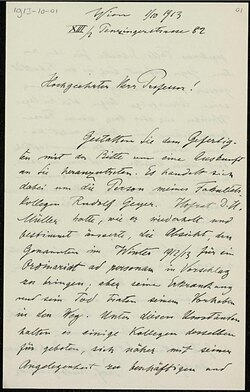 1913-10-01
01
Wien 1/10 1913
XIII/2 Penzingerstrasse 62
Hochgeehrter Herr Professor!
Gestatten Sie dem Gefertig-
ten mit der Bitte um eine Auskunft
an Sie heranzutreten. Es handelt sich
dabei um die Person meines Fakultäts-
kollegen Rudolf Geyer. Hofrat D. H.
Müller hatte, wie er wiederholt und
bestimmt äusserte, die Absicht, den
Genannten im Winter 1912/3 für ein
Ordinariat ad personam in Vorschlag
zu bringen; aber seine Erkrankung
und sein Tod traten seinem Vorhaben
in den Weg. Unter diesen Umständen
halten es einige Kollegen desselben
für geboten, sich näher mit seiner
Angelegenheit zu beschäftigen und